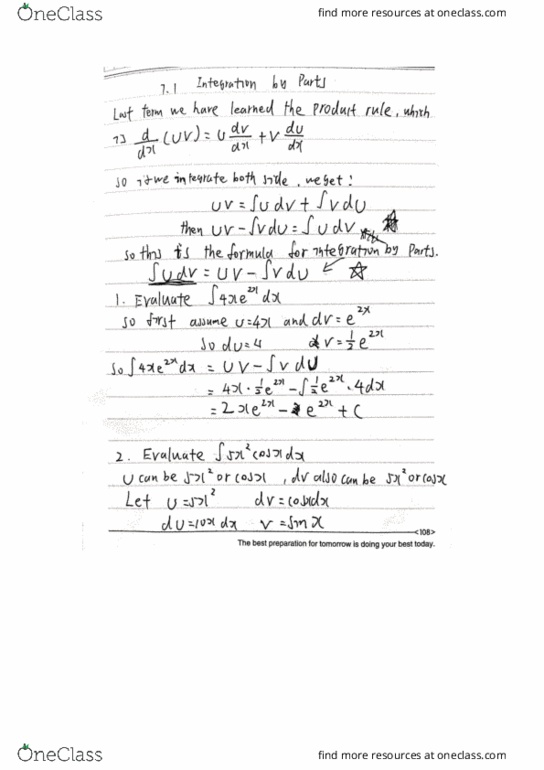 OneClass
find more resources at oneclass.com
7.1 Integration by Parts
Last term we have learned the product rule, which
is d/dx (UV) = U dv/dx + V du/dx
so if we integrate both side, we get:
UV = ∫U dV + ∫V dU
then UV - ∫V dU = ∫U dV
so this is the formula for integration by Parts.
∫U dv = UV - ∫V dU ← ☆
1. Evaluate ∫4xe^2x dx
so first assume u=4x and dv=e^2x
So du=4 v=½e^2x
So ∫4xe^2x dx = UV - ∫V dU
= 4x · ½e^2x - ∫½e^2x · 4dx
= 2xe^2x - e^2x + C
2. Evaluate ∫5x² cosx dx
U can be 5x² or cosx , dv also can be 5x² or cosx
Let U=5x² dv=cosxdx
dU=10x dx V=sinx
<108>
The best preparation for tomorrow is doing your best today.
OneClass
find more resources at oneclass.com